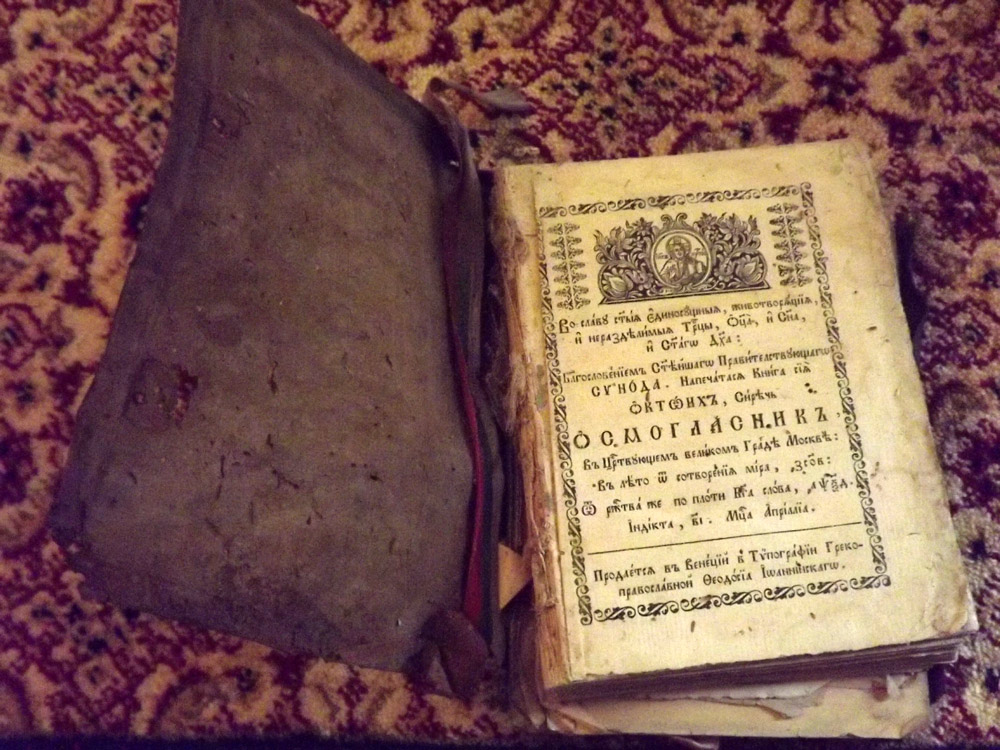 Во славу ст҃ыѧ є҆диносꙋ́щныѧ, животворѧ́щїѧ,
и҆ нераздѣ́лимыѧ Трⷪ҇цы, Ѻ҆ц҃а̀, и҆ Сн҃а,
и҆ Ст҃а́гѡ Дх҃а:
Благослове́нїемъ Ст҃ѣ́йшагѡ Прави́телствꙋющагѡ
СѴНО́ДА. Напеча́тасѧ Кни́га сїѧ̀
Ѻ҆КТѠ́ИХЪ, Си́рѣчь
Ѻ҆СМОГЛА́СНИКЪ,
въ Црⷭ҇твꙋющемъ вели́комъ Гра́дѣ Москвѣ̀:
въ лѣ́то ѿ сотворе́нїѧ мі́ра,
Ѿ рⷤ҇тва́ же по пло́ти Бг҃а сло́ва,
І҆ндї́кта, в҃і. Мцⷭ҇а А҆прі́ллїа.
Продае́тсѧ въ Вене́цїй в̾ Тѷпогра́фїи Греко-
правосла́вной Ѳеодо́сїа І҆ѡаннї́йскагѡ.